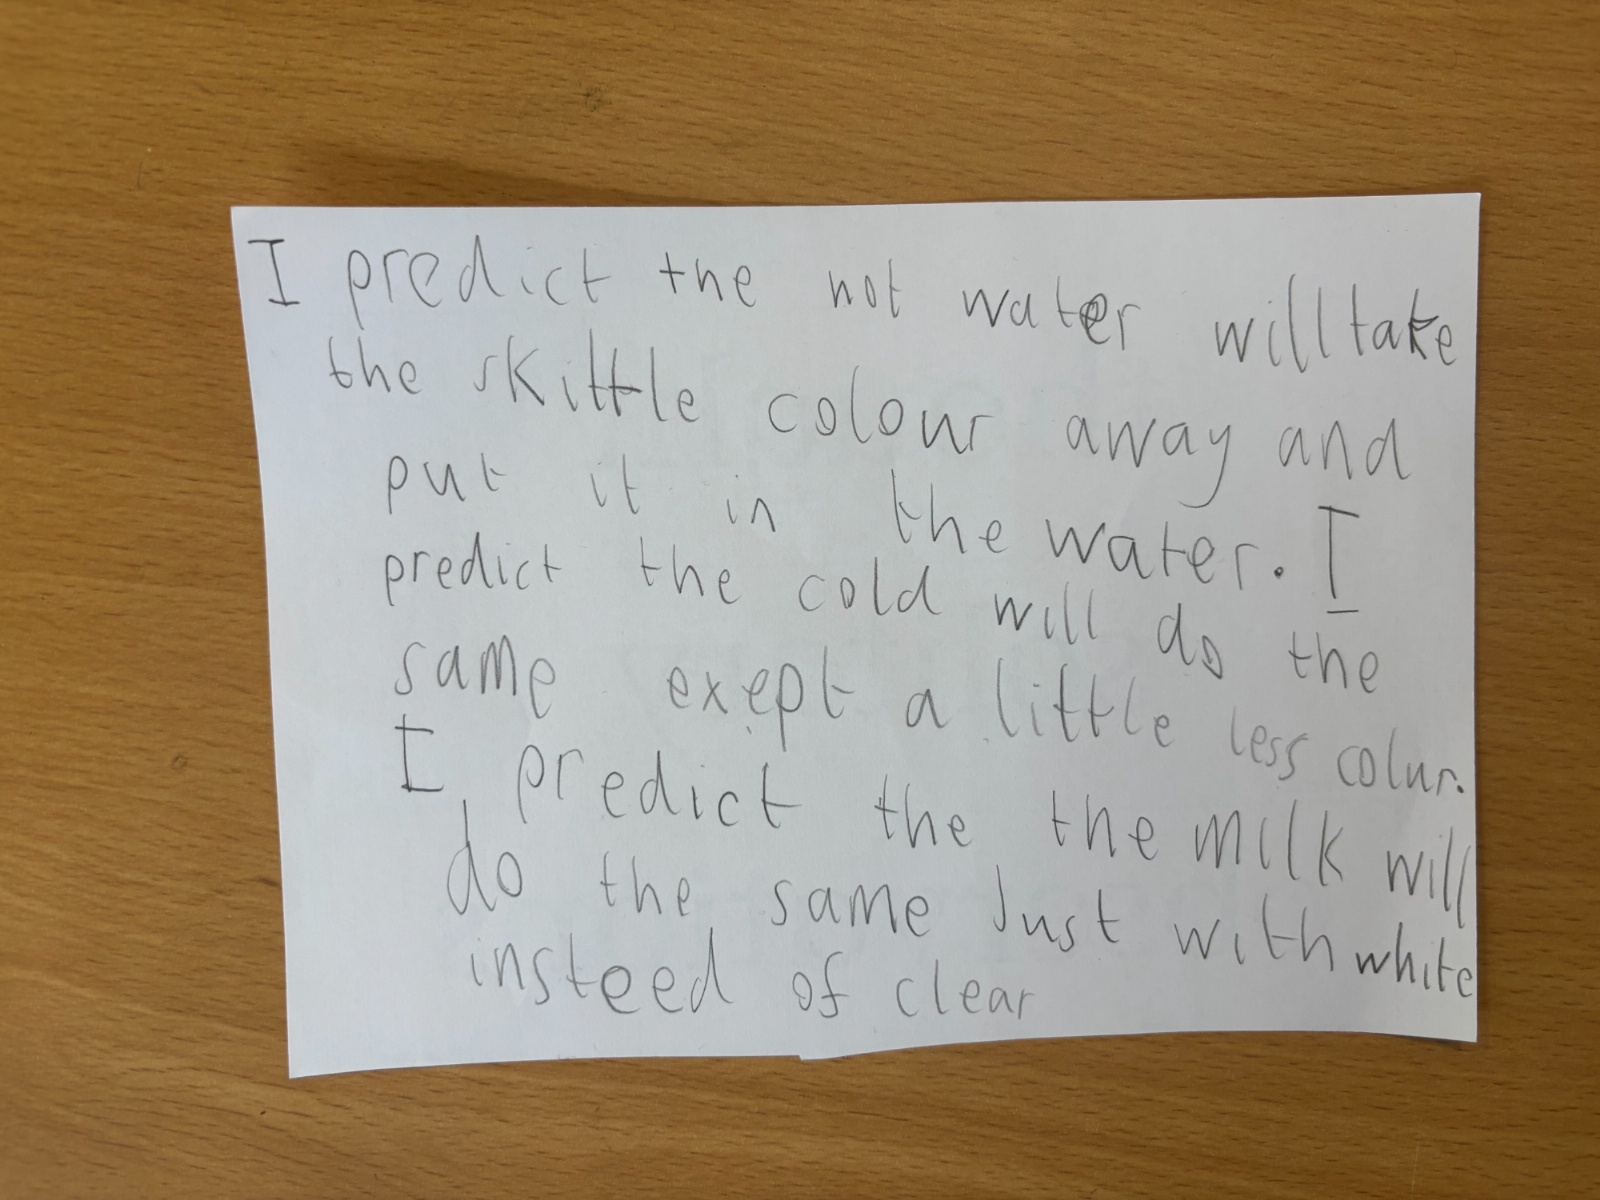 I predict the hot water will take
the skittle colour away and
put it in the water. I
predict the cold will do the
same exept a little less colur.
I predict the the milk will
do the same Just with white
insteed of clear